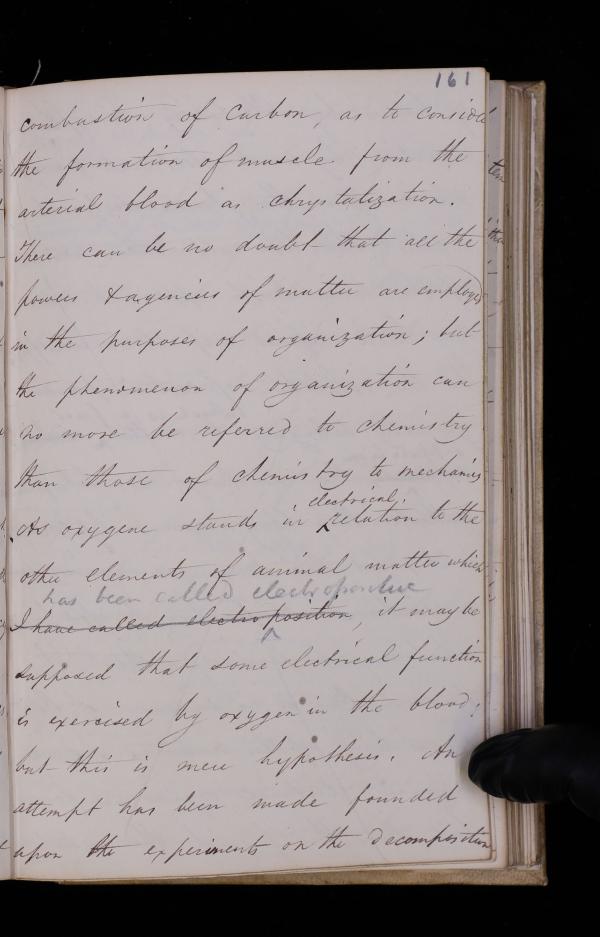 161
combustion of Carbon, as to consider
the formation of muscle from the
arterial blood as chrystalization.
There can be no doubt that all the
powers & agencies of matter are employed
in the purposes of organization; but
the phenomenon of organization can
no more be referred to chemistry
than those of chemistry to mechanics
electrical
As oxygene stands in relation to the
other elements of animal matter which
has been called electropositive
I have called electroposition, it may be
supposed that some electrical function
is exercised by oxygen in the blood;
but this is mere hypothesis. An
attempt has been made founded
upon the experiments on the decomposition